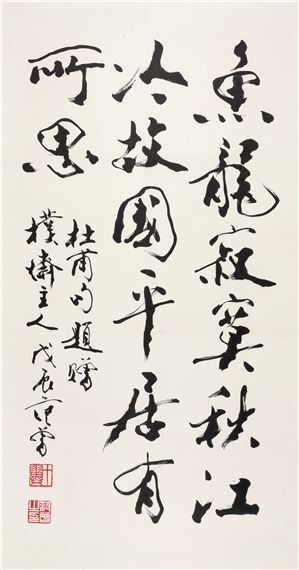 魚龍寂寞秋江
冷故國平居有
所思
杜甫句題贈
樸齋主人戊辰范曾